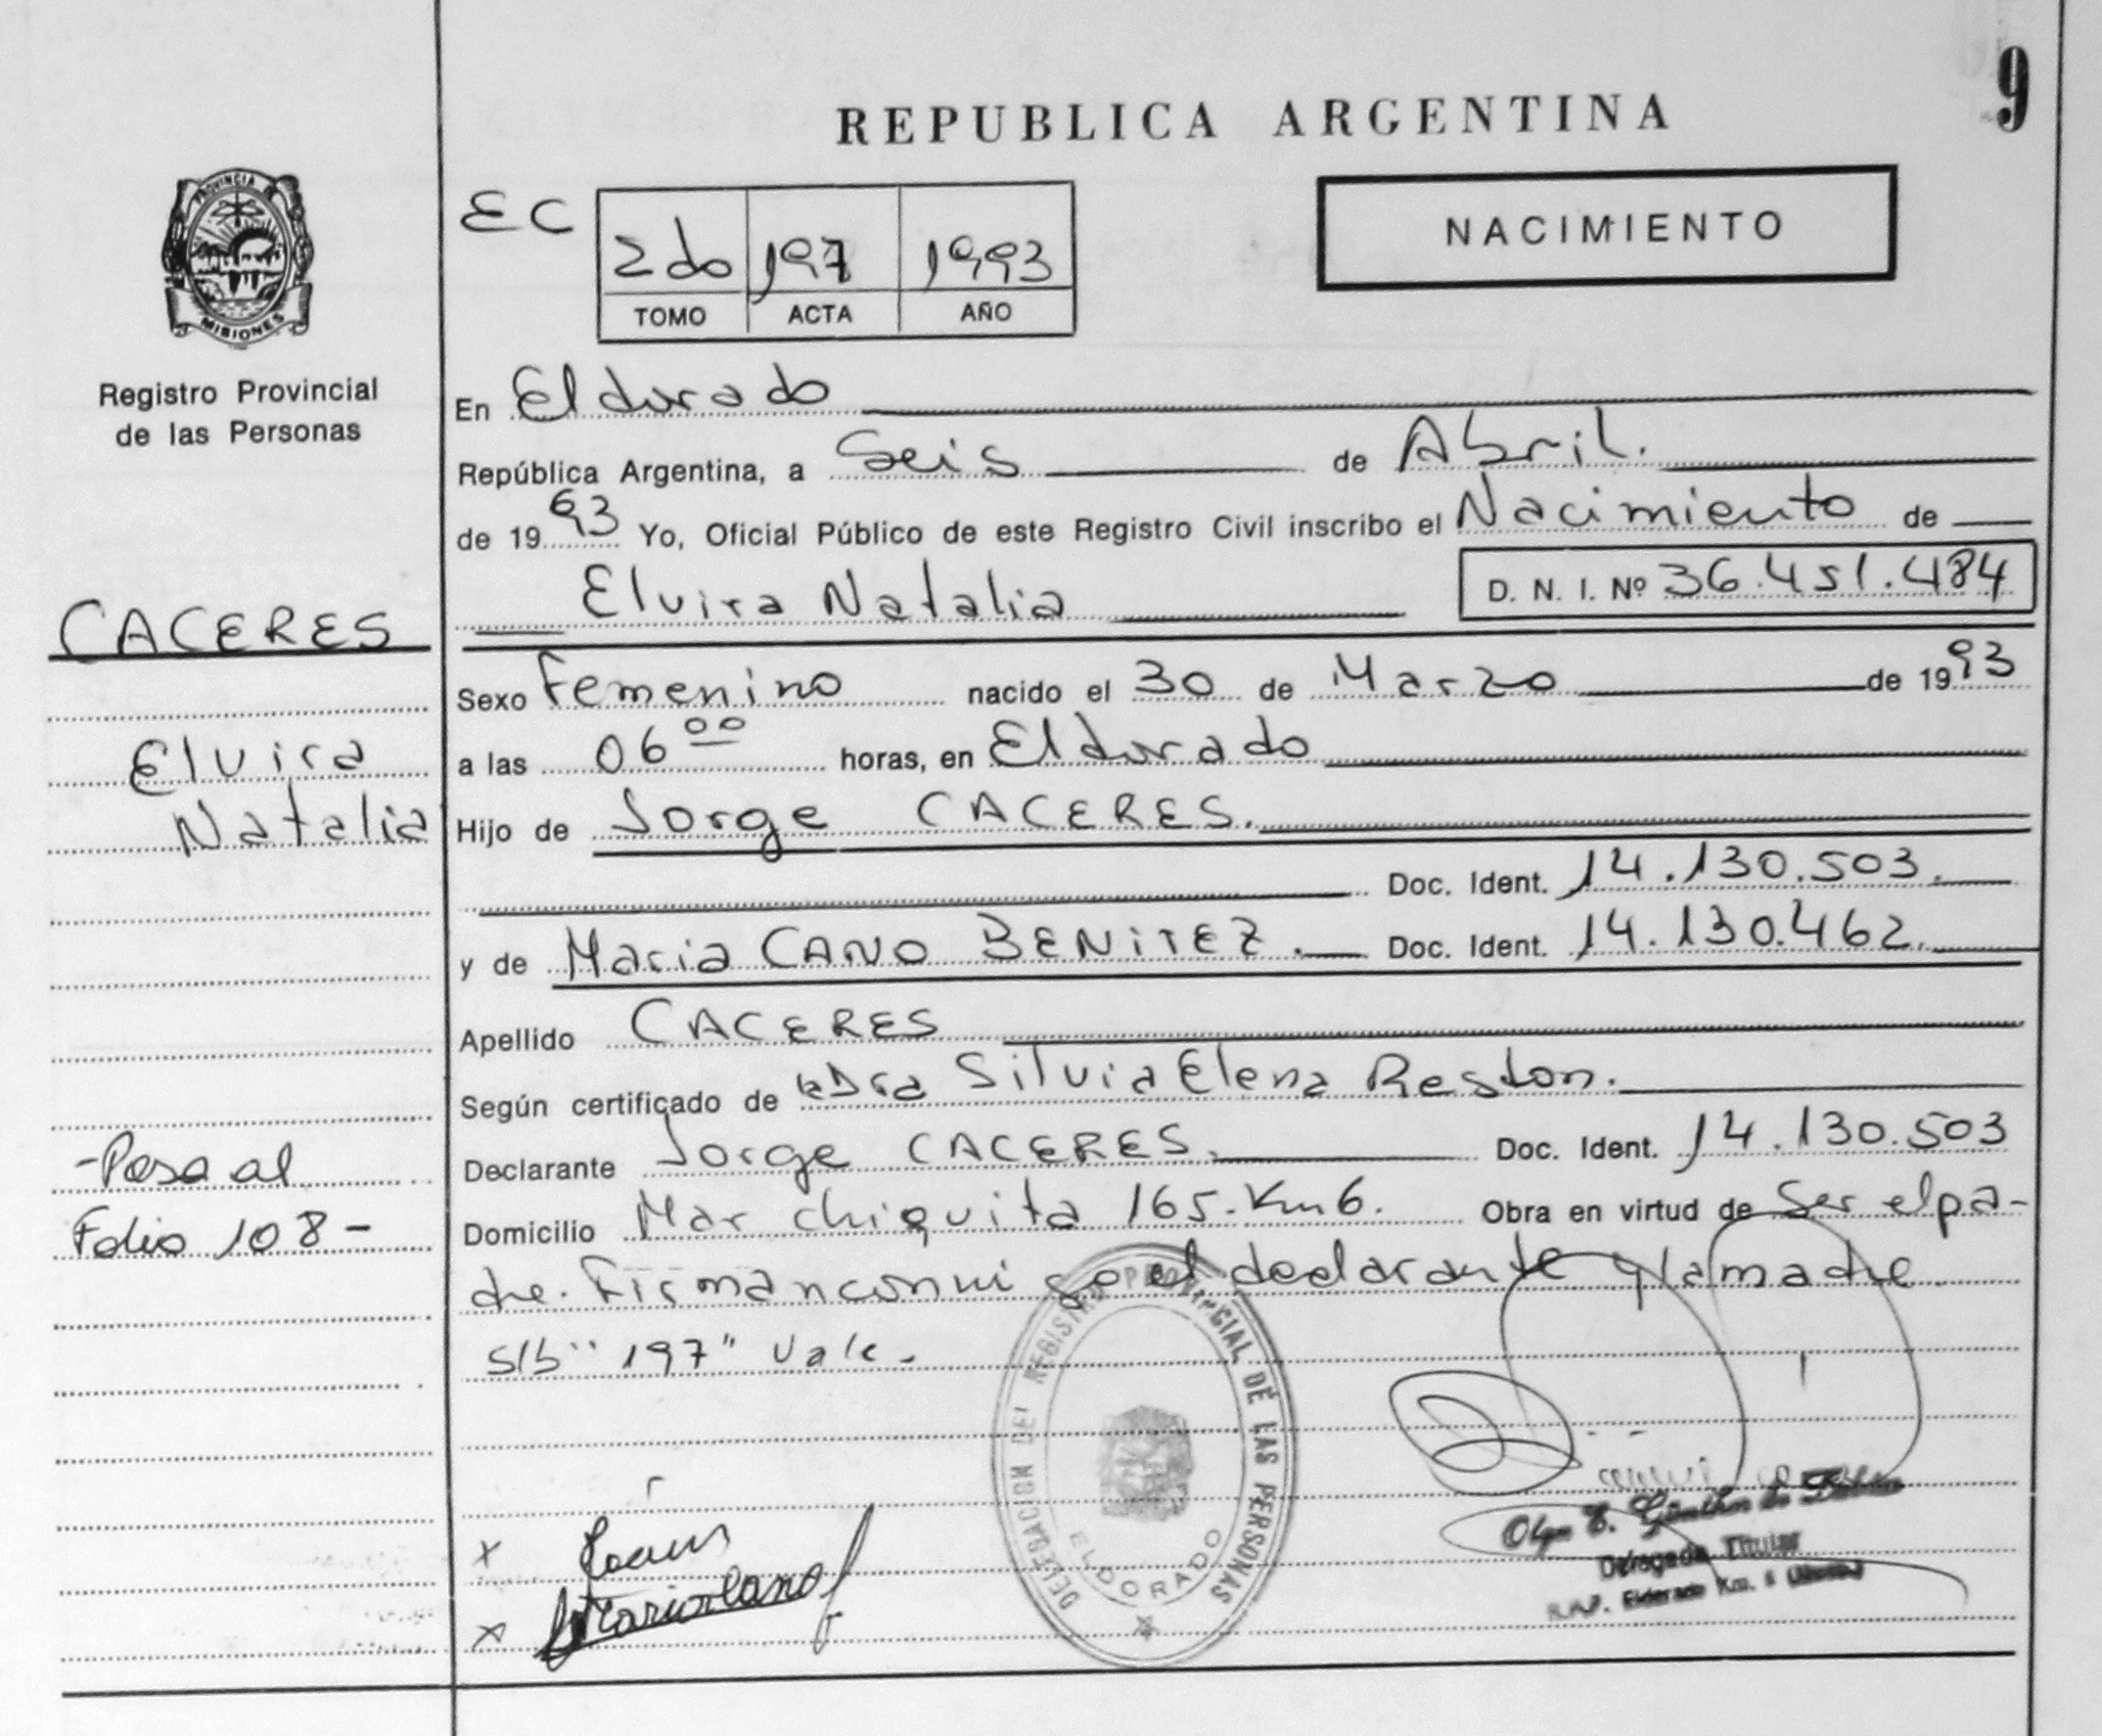 9
REPUBLICA ARGENTINA
PROVINCIA DE
MISIONES
Registro Provincial
de las Personas
EC
2do 197 1993
TOMO ACTA AÑO
NACIMIENTO
En Eldorado
República Argentina, a Seis de Abril.
de 1993 Yo, Oficial Público de este Registro Civil inscribo el Nacimiento de
Elvira Natalia
D. N. I. Nº 36.451.484
CACERES
Elvira
Natalia
Sexo Femenino nacido el 30 de Marzo de 1993
a las 06 00 horas, en Eldorado
Hijo de Jorge CACERES.
Doc. Ident. 14.130.503.
y de Maria CANO BENITEZ. Doc. Ident. 14.130.462.
Apellido CACERES
Según certificado de la Dra Silvia Elena Reston.
Declarante Jorge CACERES. Doc. Ident. 14.130.503
Domicilio Mar chiquita 165. Km 6. Obra en virtud de Ser el pa-
dre. Firman conmigo el declarante y la madre.
S/b "197" Vale.
-Pasa al
Folio 108-
DELEGACION DEL REGISTRO PROVINCIAL DE LAS PERSONAS
ELDORADO
x
x Maria Cano
Olga E. Günther de
Delegada Titular
Eldorado Km.